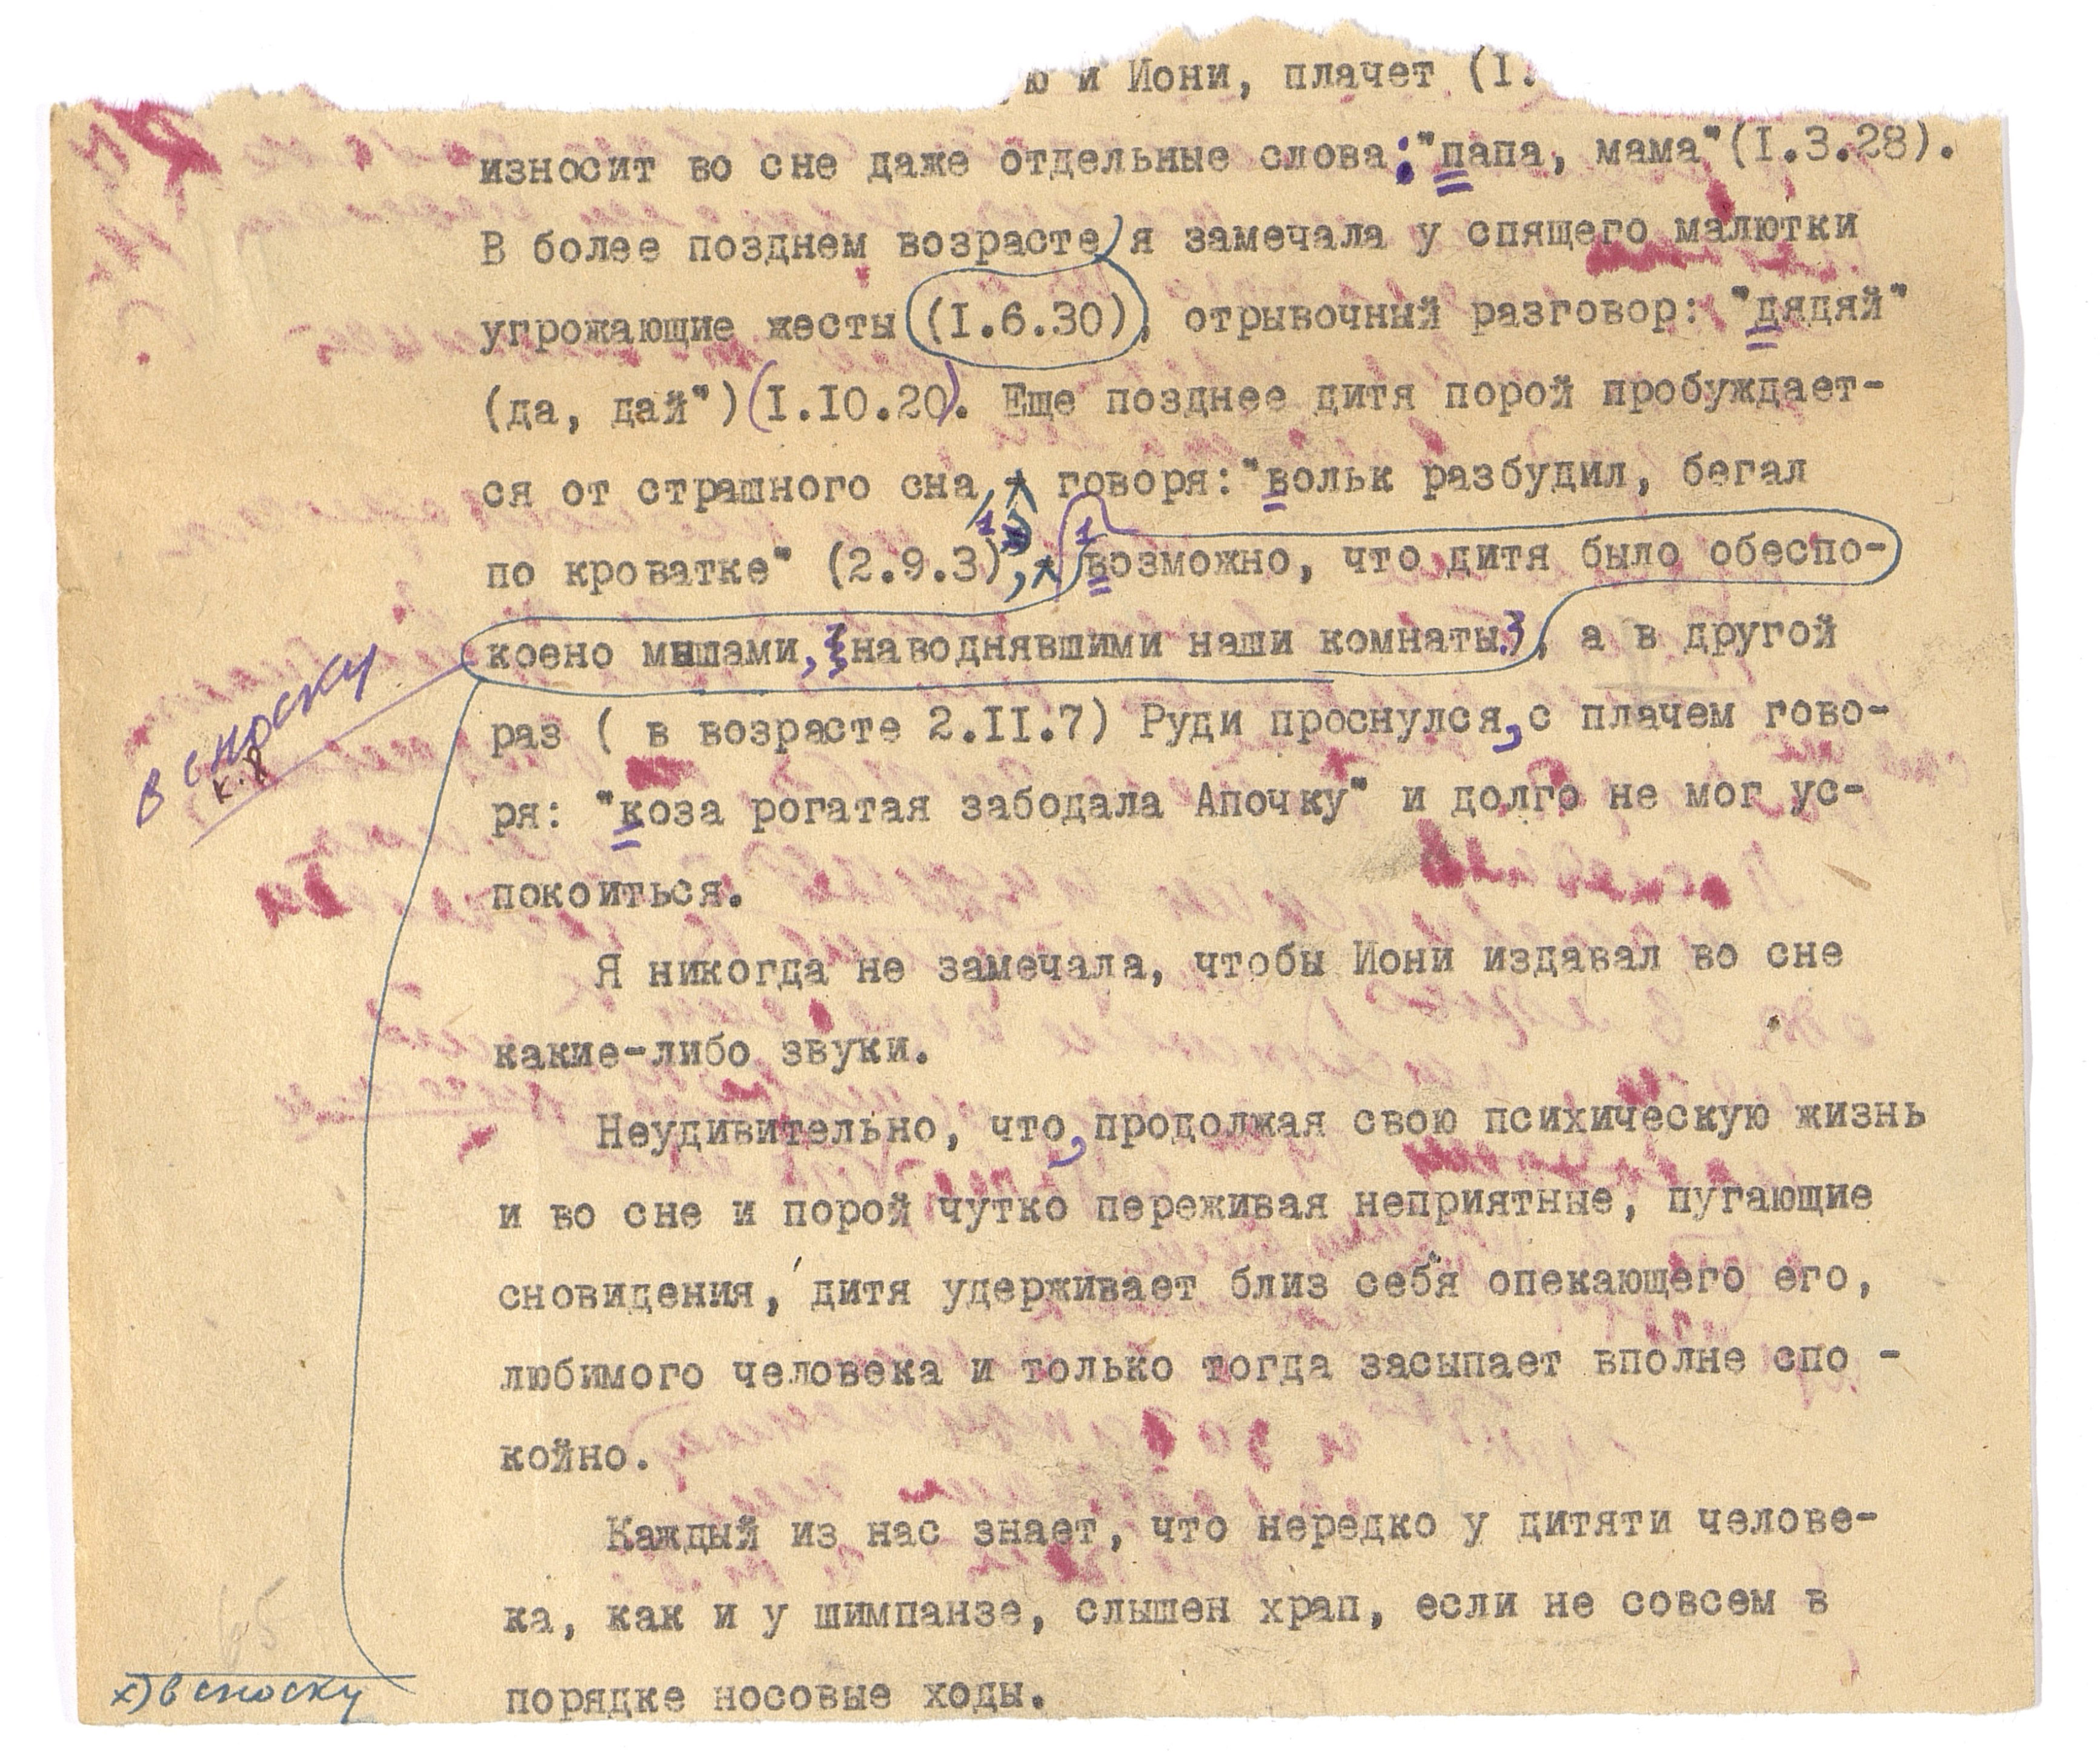 ю и Иони, плачет (I.
износит во сне даже отдельные слова: "папа, мама" (I.3.28).
В более позднем возрасте я замечала у спящего малютки
угрожающие жесты (I.6.30), отрывочный разговор: "дядяй"
(да, дай") (I.I0.20). Еще позднее дитя порой пробуждает-
ся от страшного сна, говоря: "вольк разбудил, бегал
по кроватке" (2.9.3), возможно, что дитя было обеспо-
коено мышами, наводнявшими наши комнаты, а в другой
в сноску
к.р
раз ( в возрасте 2.II.7) Руди проснулся, с плачем гово-
ря: "коза рогатая забодала Апочку" и долго не мог ус-
покоиться.
Я никогда не замечала, чтобы Иони издавал во сне
какие-либо звуки.
Неудивительно, что, продолжая свою психическую жизнь
и во сне и порой чутко переживая неприятные, пугающие
сновидения, дитя удерживает близ себя опекающего его,
любимого человека и только тогда засыпает вполне спо -
койно.
Каждый из нас знает, что нередко у дитяти челове-
ка, как и у шимпанзе, слышен храп, если не совсем в
порядке носовые ходы.
65
х) в сноску